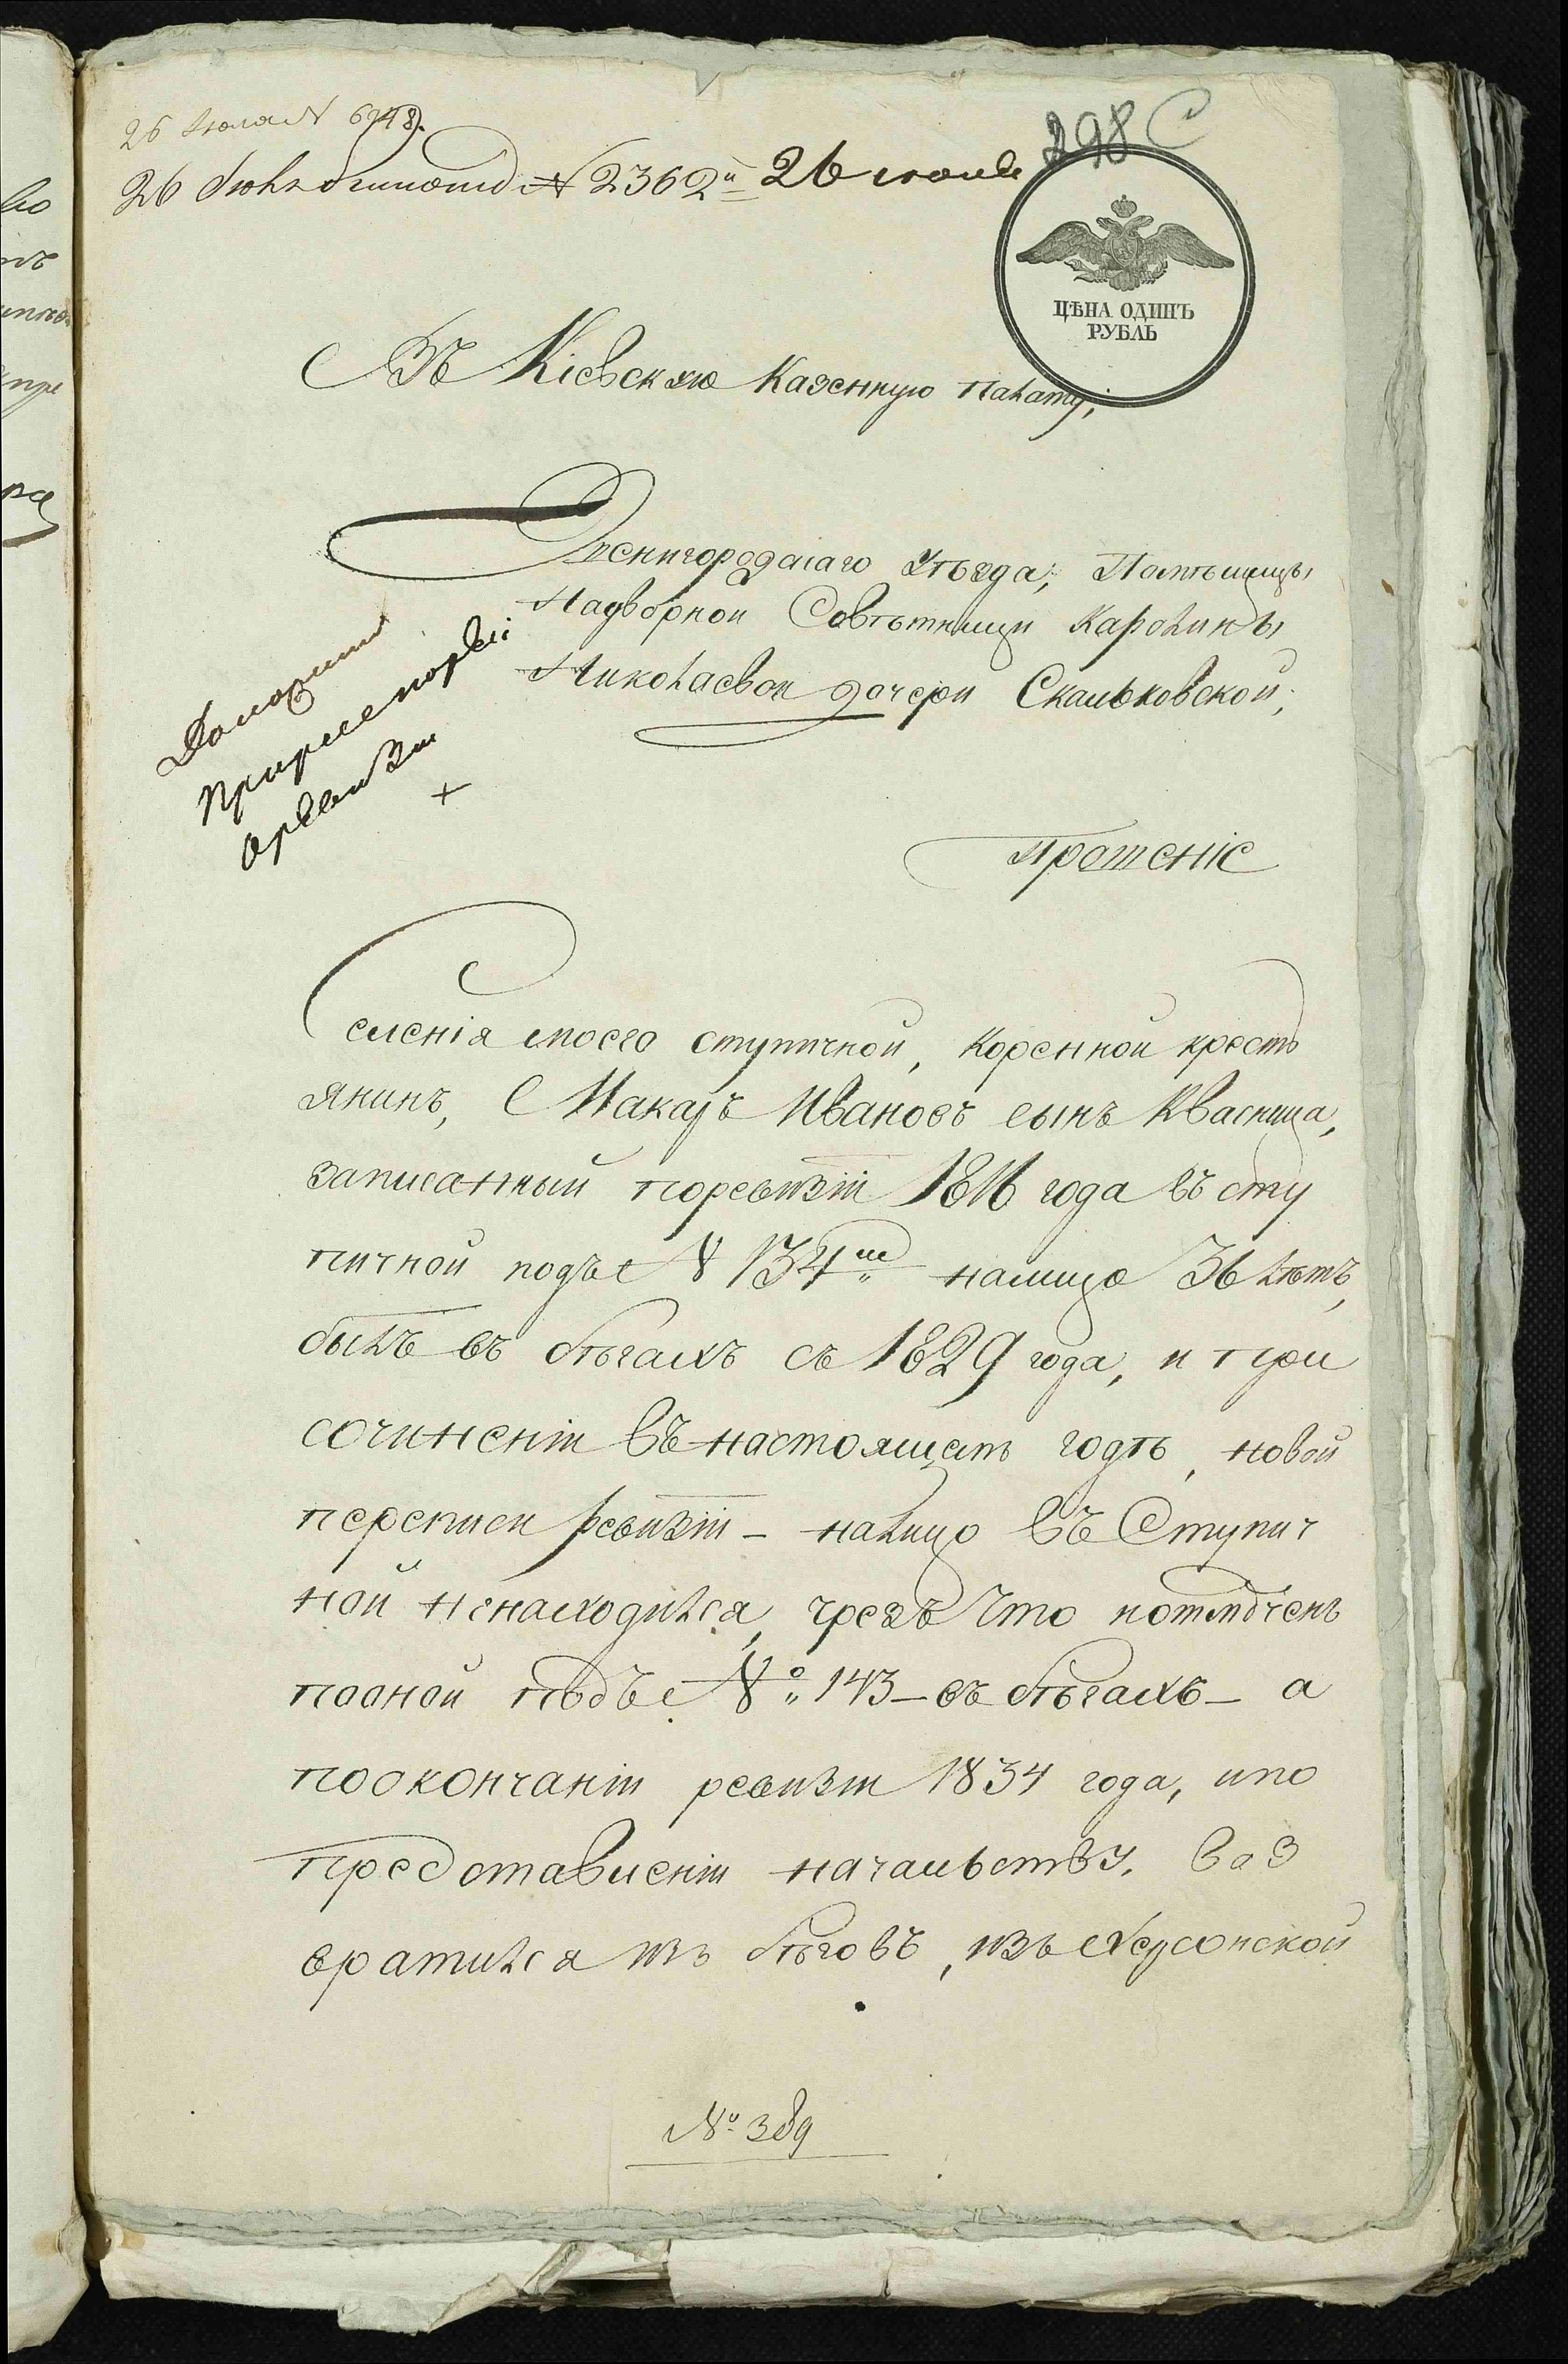 26 Июля N 6948.
26 Июля N 2362й 26 июля
298
ЦѢНА ОДИНЪ
РУБЛЬ
Въ Кіевскую Казенную Палату;
Звенигородскаго Уѣзда, Помѣщицы
Надворной Совѣтницы Каролины
Николаевой дочери Скальковской,
Прошеніе
Селенія моего Ступичной, коренной кресть
янинъ, Макаръ Ивановъ сынъ Квасница,
записанный поревизіи 1816 года въ сту
пичной подъ N 134ме налицо 36 лѣтъ,
былъ въ бѣгахъ съ 1829 года, и при
сочиненіи въ настоящемъ годѣ, новой
переписи ревизіи - налицо въ Ступич
ной ненаходился, чрезъ что и отмѣченъ
пооной подъ No 143 - въ бѣгахъ - а
поокончаніи ревизіи 1834 года, и по
представленіи начальству, воз
вратился изъ бѣговъ, изъ Херсонской
No 389